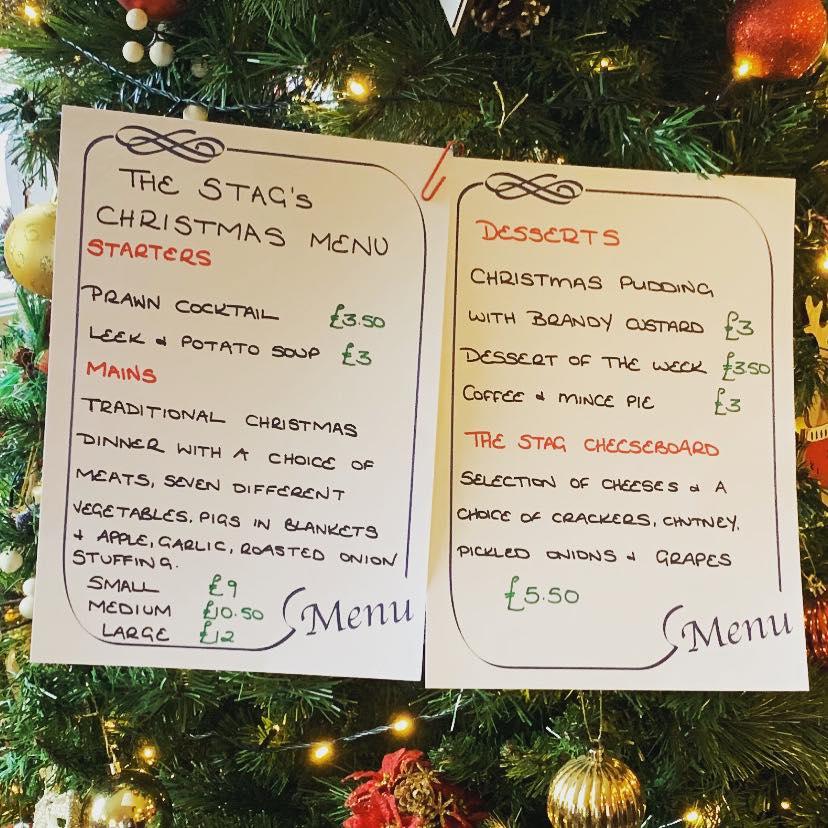 THE STAG'S
CHRISTMAS MENU
STARTERS
PRAWN COCKTAIL £3.50
LEEK & POTATO SOUP £3
MAINS
TRADITIONAL CHRISTMAS
DINNER WITH A CHOICE OF
MEATS, SEVEN DIFFERENT
VEGETABLES, PIGS IN BLANKETS
& APPLE, GARLIC, ROASTED ONION
STUFFING.
SMALL £9
MEDIUM £10.50
LARGE £12
Menu
DESSERTS
CHRISTMAS PUDDING
WITH BRANDY CUSTARD £3
DESSERT OF THE WEEK £3.50
COFFEE & MINCE PIE £3
THE STAG CHEESEBOARD
SELECTION OF CHEESES & A
CHOICE OF CRACKERS, CHUTNEY,
PICKLED ONIONS & GRAPES
£5.50
Menu